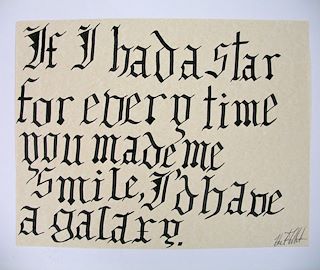 If I had a star
for every time
you made me
smile, I'd have
a galaxy.